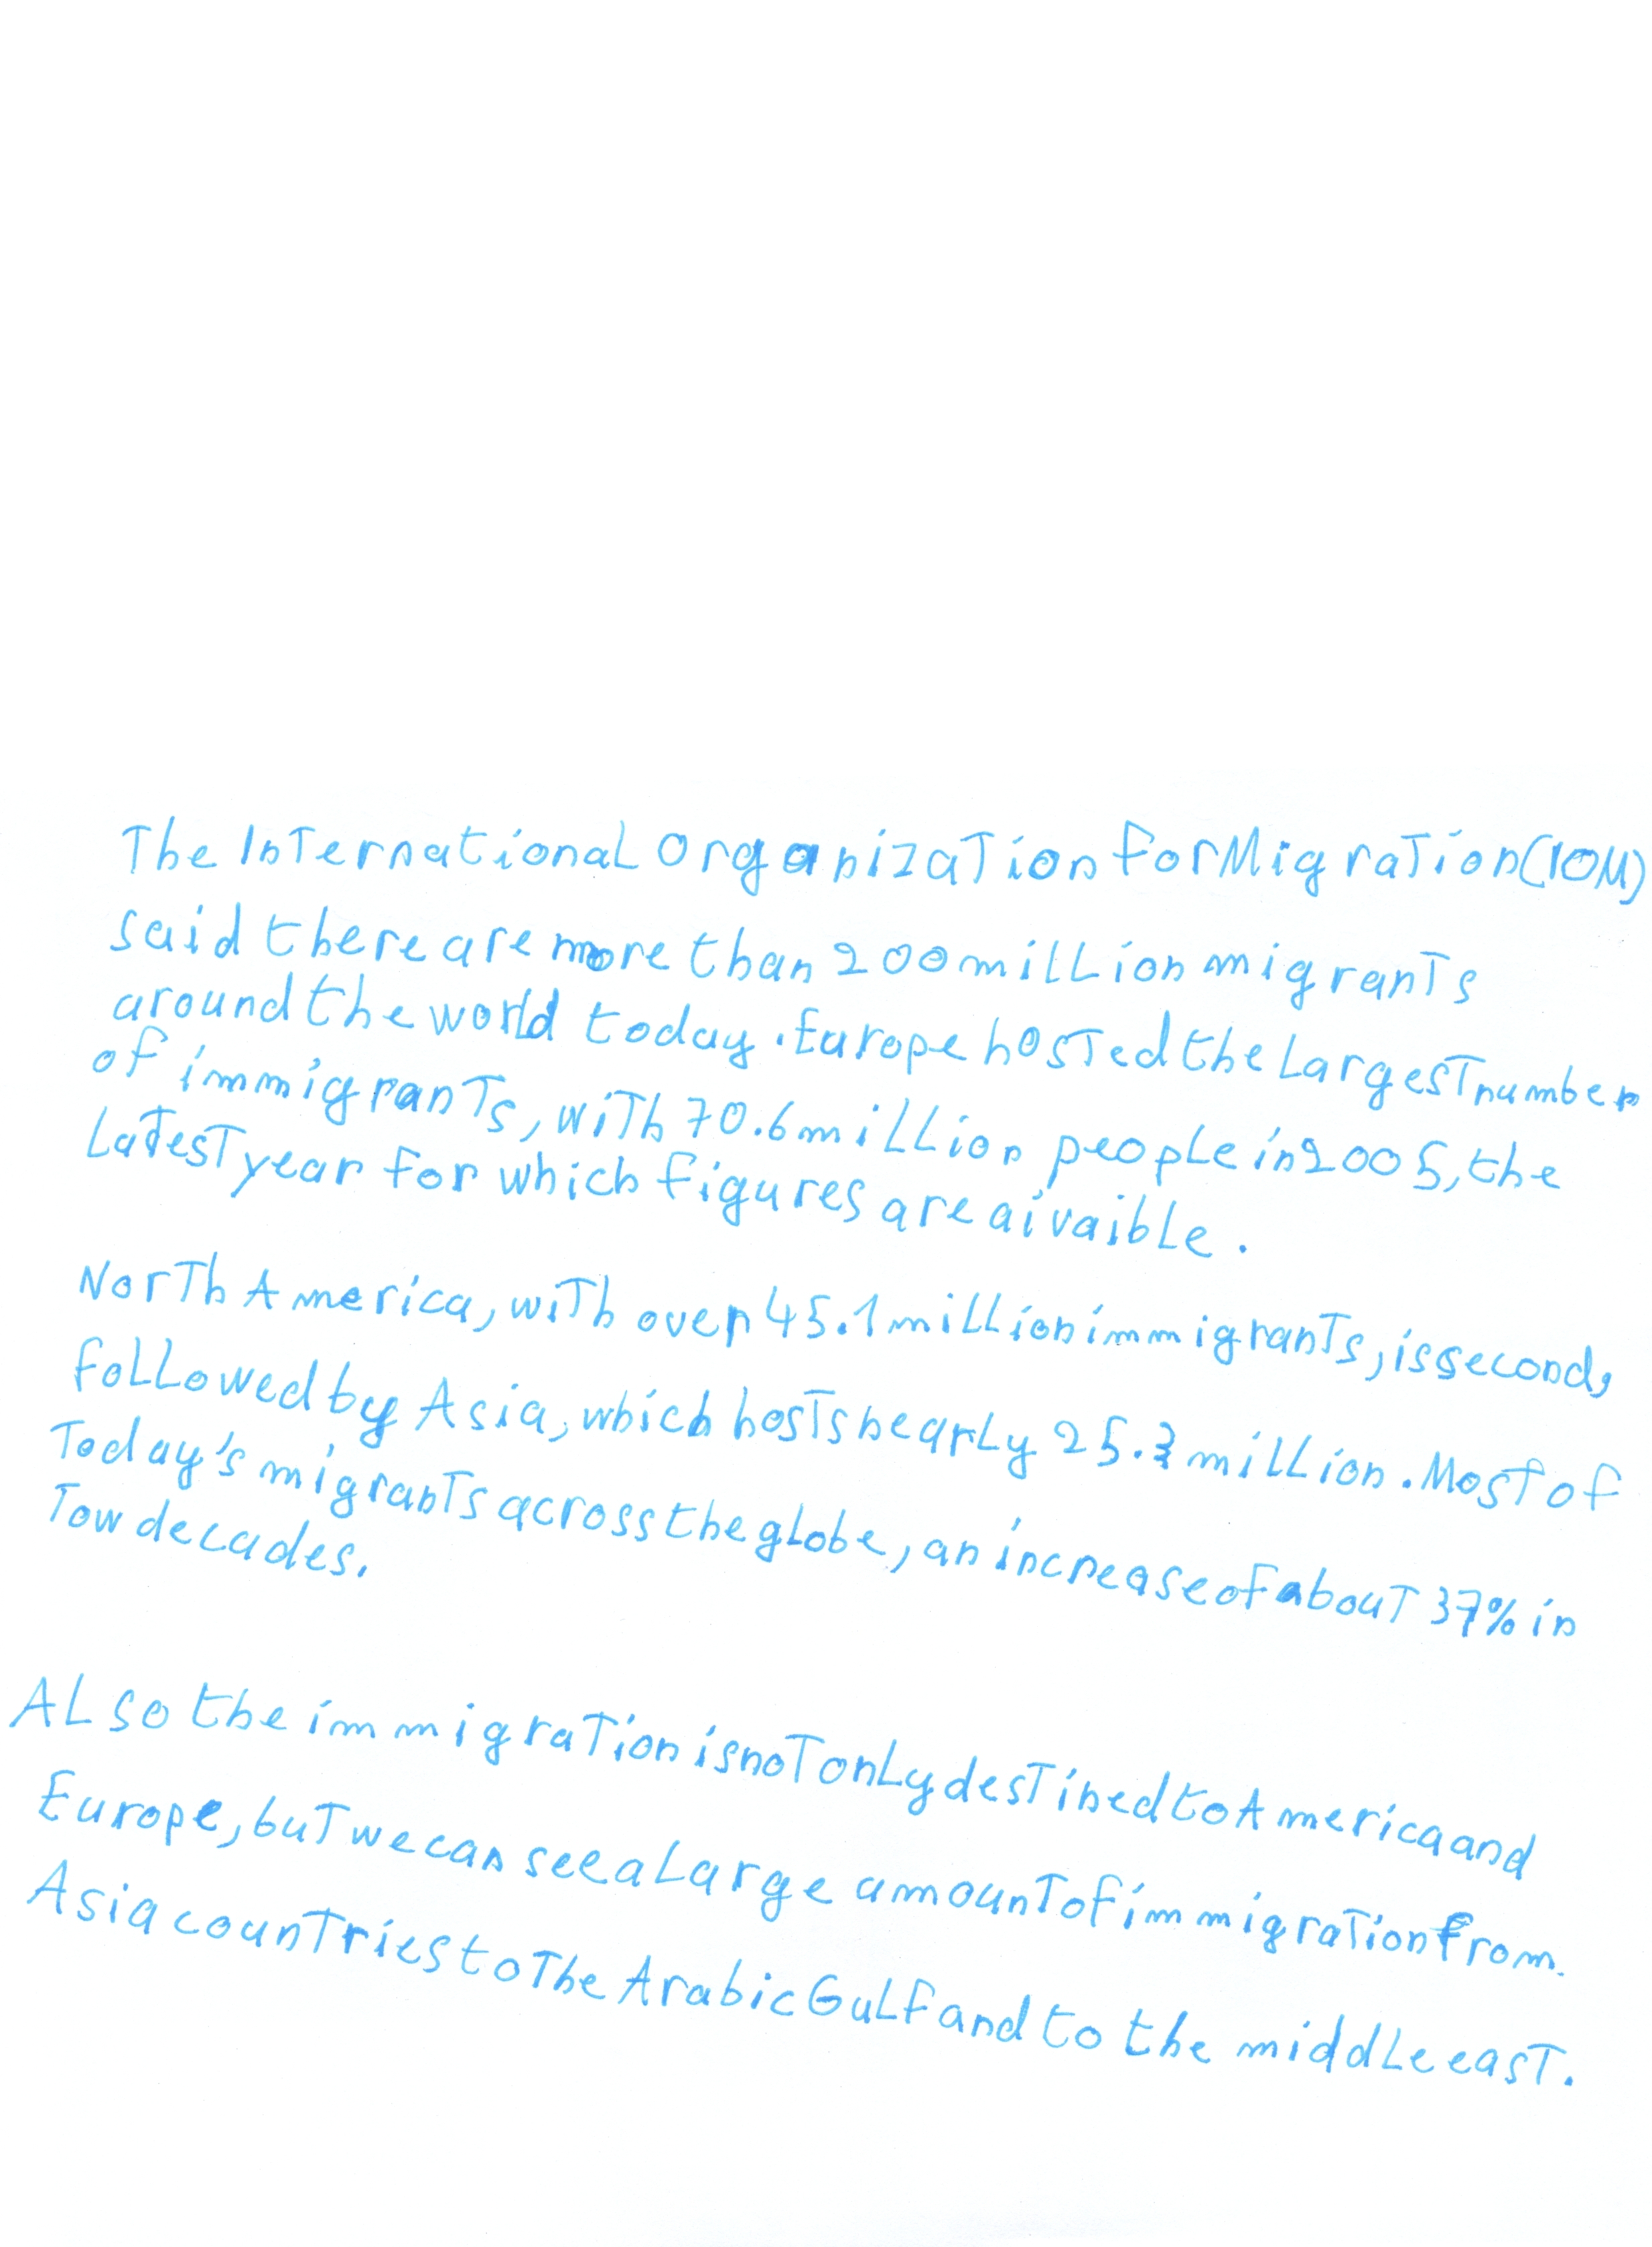 The International Organization for Migration (IOM)
said there are more than 200 million migrants
around the world today. Europe hosted the Largest number
of immigrants, with 70.6 million people in 2005, the
Latest year for which figures are aivaible.
North America, with over 45.1 million immigrants, is second,
followed by Asia, which hosts nearly 25.3 million. Most of
Today's migrants across the globe, an increase of about 37% in
Tow decades.
Also the immigration is not only destined to America and
Europe, but we can see a Large amount of immigration from.
Asia countries to The Arabic Gulf and to the middle east.